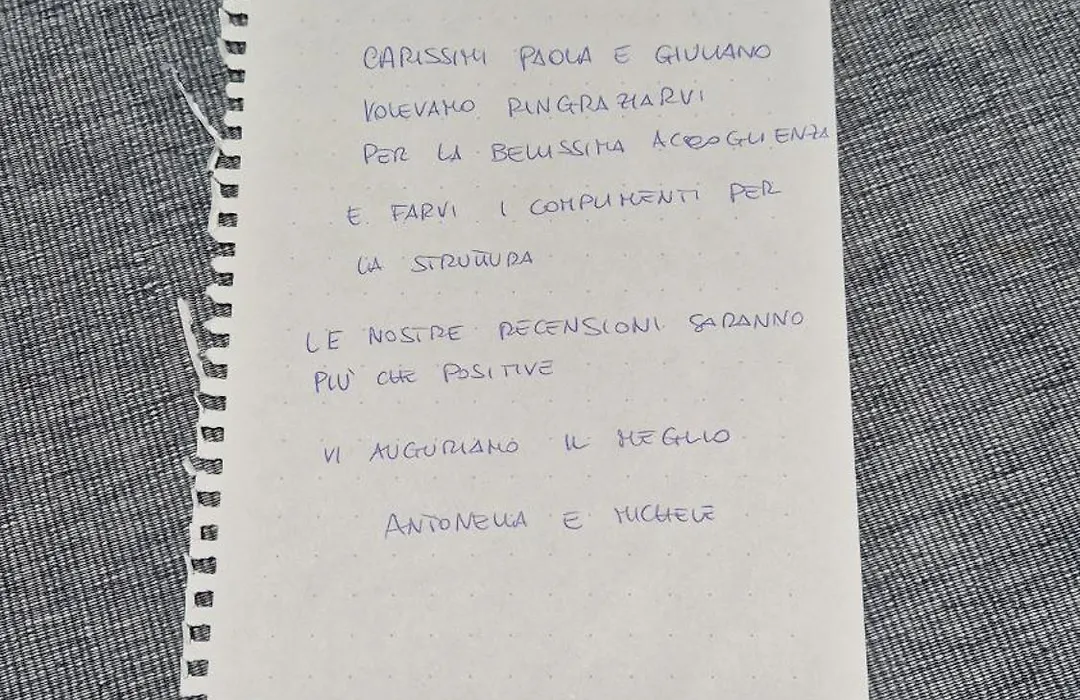 CARISSIMI PAOLA E GIULIANO
VOLEVAMO RINGRAZIARVI
PER LA BELLISSIMA ACCOGLIENZA
E FARVI I COMPLIMENTI PER
LA STRUTTURA
LE NOSTRE RECENSIONI SARANNO
PIU' CHE POSITIVE
VI AUGURIAMO IL MEGLIO
ANTONELLA E MICHELE